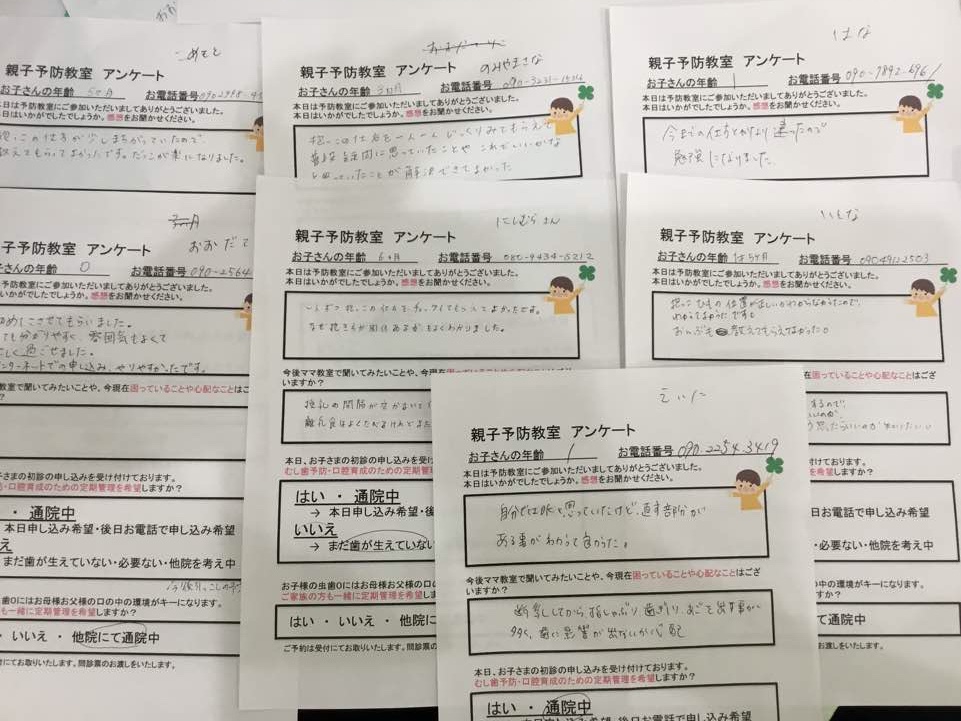 こめてと
親子予防教室 アンケート
お子さんの年齢 5ヶ月 お電話番号
本日は予防教室にご参加いただいましてありがとうございました。
本日はいかがでしたでしょうか。感想をお聞かせください。
抱っこの仕方が少しまちがっていたので、
教えてもらってよかったです。だっこが楽になりました。
のみやまさな
親子予防教室 アンケート
お子さんの年齢 3ヵ月 お電話番号
本日は予防教室にご参加いただいましてありがとうございました。
本日はいかがでしたでしょうか。感想をお聞かせください。
抱っこの仕方を一人一人じっくりみてもらえて
普段疑問に思っていたことや これでいいかな
と思っていたことが解決できてよかった
はな
親子予防教室 アンケート
お子さんの年齢 1 お電話番号
本日は予防教室にご参加いただいましてありがとうございました。
本日はいかがでしたでしょうか。感想をお聞かせください。
今までの仕方とかなり違ったので
勉強になりました
おおだて
親子予防教室 アンケート
お子さんの年齢 0 お電話番号 090-2564
本日は予防教室にご参加いただいましてありがとうございました。
本日はいかがでしたでしょうか。感想をお聞かせください。
させてもらいました。
ても分かりやすく、雰囲気もよくて
しく過ごせました。
ンターネットでの申し込み、やりやすかったです。
教室で聞いてみたいことや、今現在困っていることや心配なことはござ
か？
お子さまの初診の申し込みを受け付けております。
防・口腔育成のための定期管理を希望しますか？
・ 通院中
本日申し込み希望・後日お電話で申し込み希望
え
まだ歯が生えていない・必要ない・他院を考え中
歯0にはお母様お父様の口の中の環境がキーになります。
も一緒に定期管理を希望しますか？
・ いいえ ・ 他院にて通院中
付にてお取りいたします。問診票のお渡しをいたします。
にしむらさん
親子予防教室 アンケート
お子さんの年齢 6ヶ月 お電話番号 080-9434-5212
本日は予防教室にご参加いただいましてありがとうございました。
本日はいかがでしたでしょうか。感想をお聞かせください。
一人ずつ抱っこの仕方をチェックしてもらえてよかったです。
なぜ抱き方が関係あるかもよくわかりました。
今後ママ教室で聞いてみたいことや、今現在困っていることや心配なことはござ
いますか？
授乳の間隔が空かない
離乳食はよくたべるけれどまだ
本日、お子さまの初診の申し込みを受け付け
むし歯予防・口腔育成のための定期管理
はい ・ 通院中
→ 本日申し込み希望・後
いいえ
→ まだ歯が生えていない
お子様の虫歯0にはお母様お父様の口の
ご家族の方も一緒に定期管理を希望し
はい ・ いいえ ・ 他院に
ご予約は受付にてお取りいたします。問診
いとな
親子予防教室 アンケート
お子さんの年齢 1才5ヶ月 お電話番号 09049122503
本日は予防教室にご参加いただいましてありがとうございました。
本日はいかがでしたでしょうか。感想をお聞かせください。
抱っこひもの位置が正しいかわからなかったので、
わかってよかったです
おんぶも教えてもらえてよかった
困っていることや心配なことはござ
するので、
いいのか
付けております。
希望しますか？
日お電話で申し込み希望
・必要ない・他院を考え中
の中の環境がキーになります。
ますか？
て通院中
のお渡しをいたします。
えいた
親子予防教室 アンケート
お子さんの年齢 1 お電話番号 090-2254-3419
本日は予防教室にご参加いただいましてありがとうございました。
本日はいかがでしたでしょうか。感想をお聞かせください。
自分ではOKと思っていたけど、直す部分が
ある事がわかって良かった。
今後ママ教室で聞いてみたいことや、今現在困っていることや心配なことはござ
いますか？
断乳してから指しゃぶり 歯ぎしり、あごを出す事が
多く、歯に影響が出ないか心配
本日、お子さまの初診の申し込みを受け付けております。
むし歯予防・口腔育成のための定期管理を希望しますか？
はい ・ 通院中
本日申し込み希望・後日お電話で申し込み希望